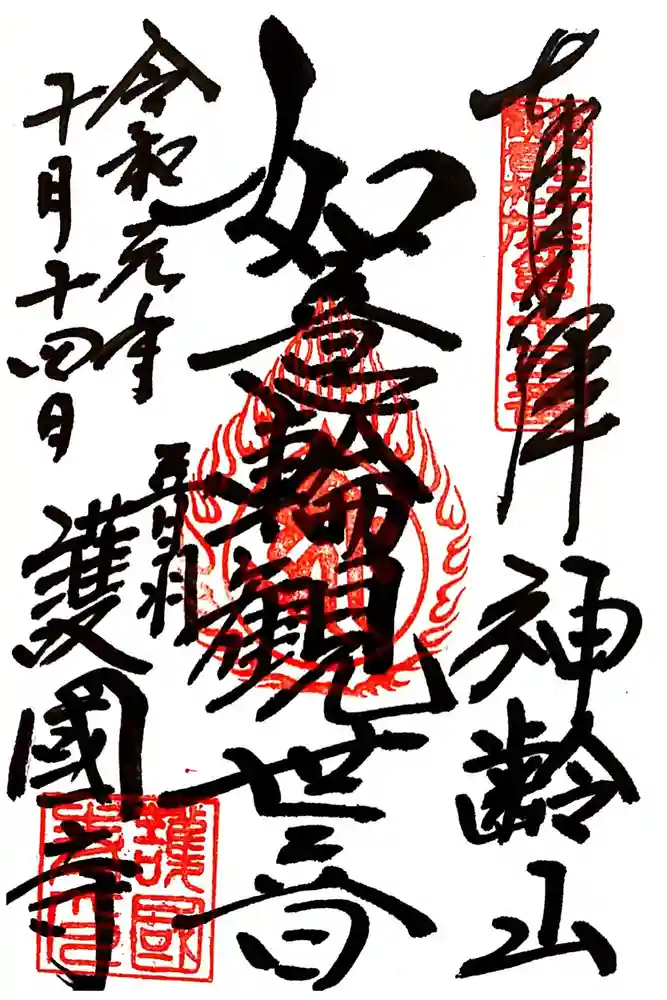 奉拝
神齢山
如意輪観世音
令和元年
十月十四日
音羽
護國寺
護國
寺印